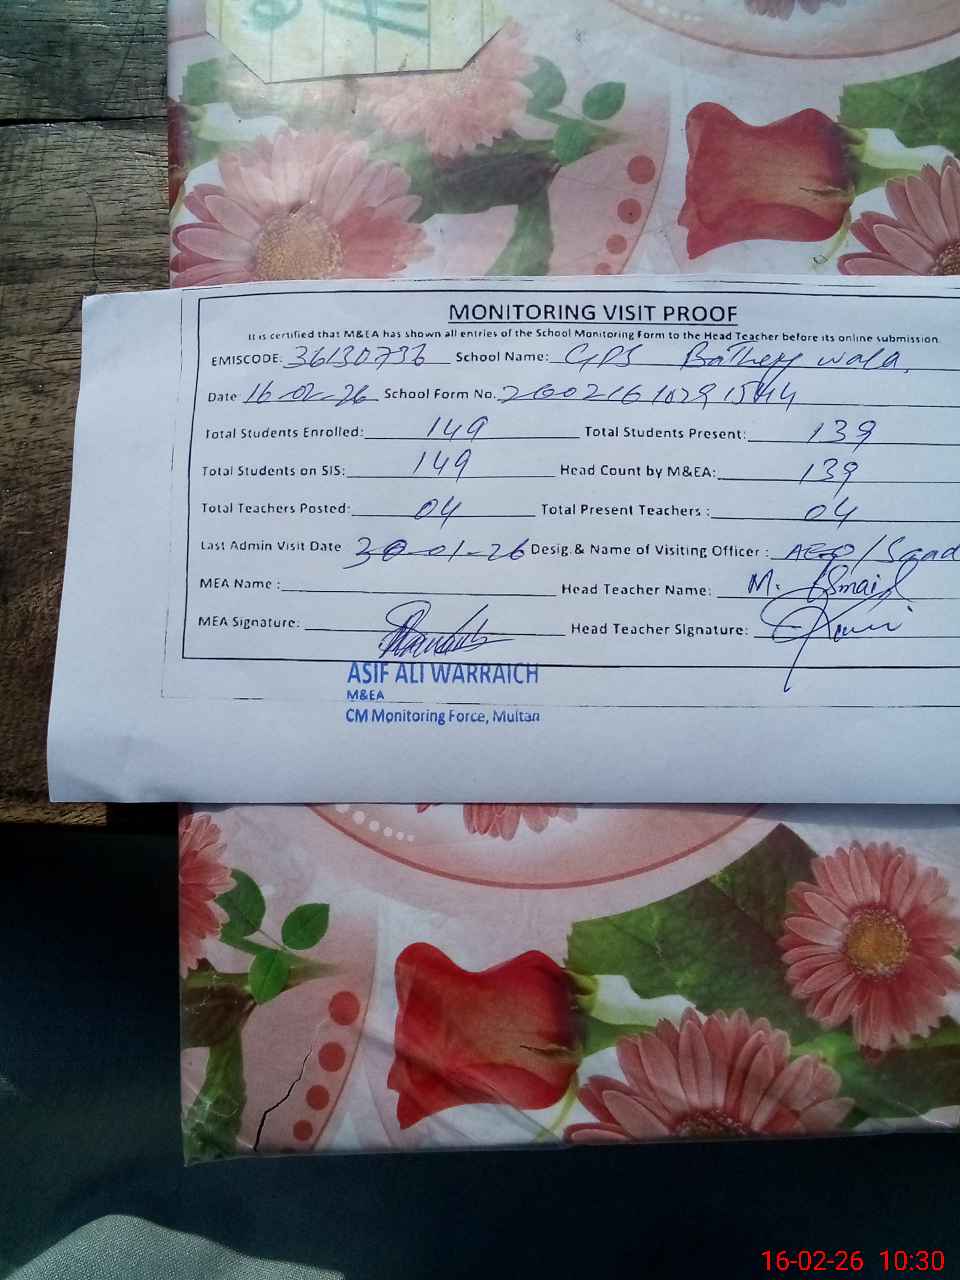 MONITORING VISIT PROOF
It is certified that M&EA has shown all entries of the School Monitoring Form to the Head Teacher before its online submission.
EMISCODE: 36130736 School Name: GPS wala
Date 16-02-26 School Form No. 2602161029
Total Students Enrolled: 149 Total Students Present: 139
Total Students on SIS: 149 Head Count by M&EA: 139
Total Teachers Posted: 04 Total Present Teachers : 04
Last Admin Visit Date 30-01-26 Desig.& Name of Visiting Officer : AEO/Saad
MEA Name : Head Teacher Name: M. Ismail
MEA Signature: Head Teacher Signature:
ASIF ALI WARRAICH
M&EA
CM Monitoring Force, Multan
16-02-26 10:30